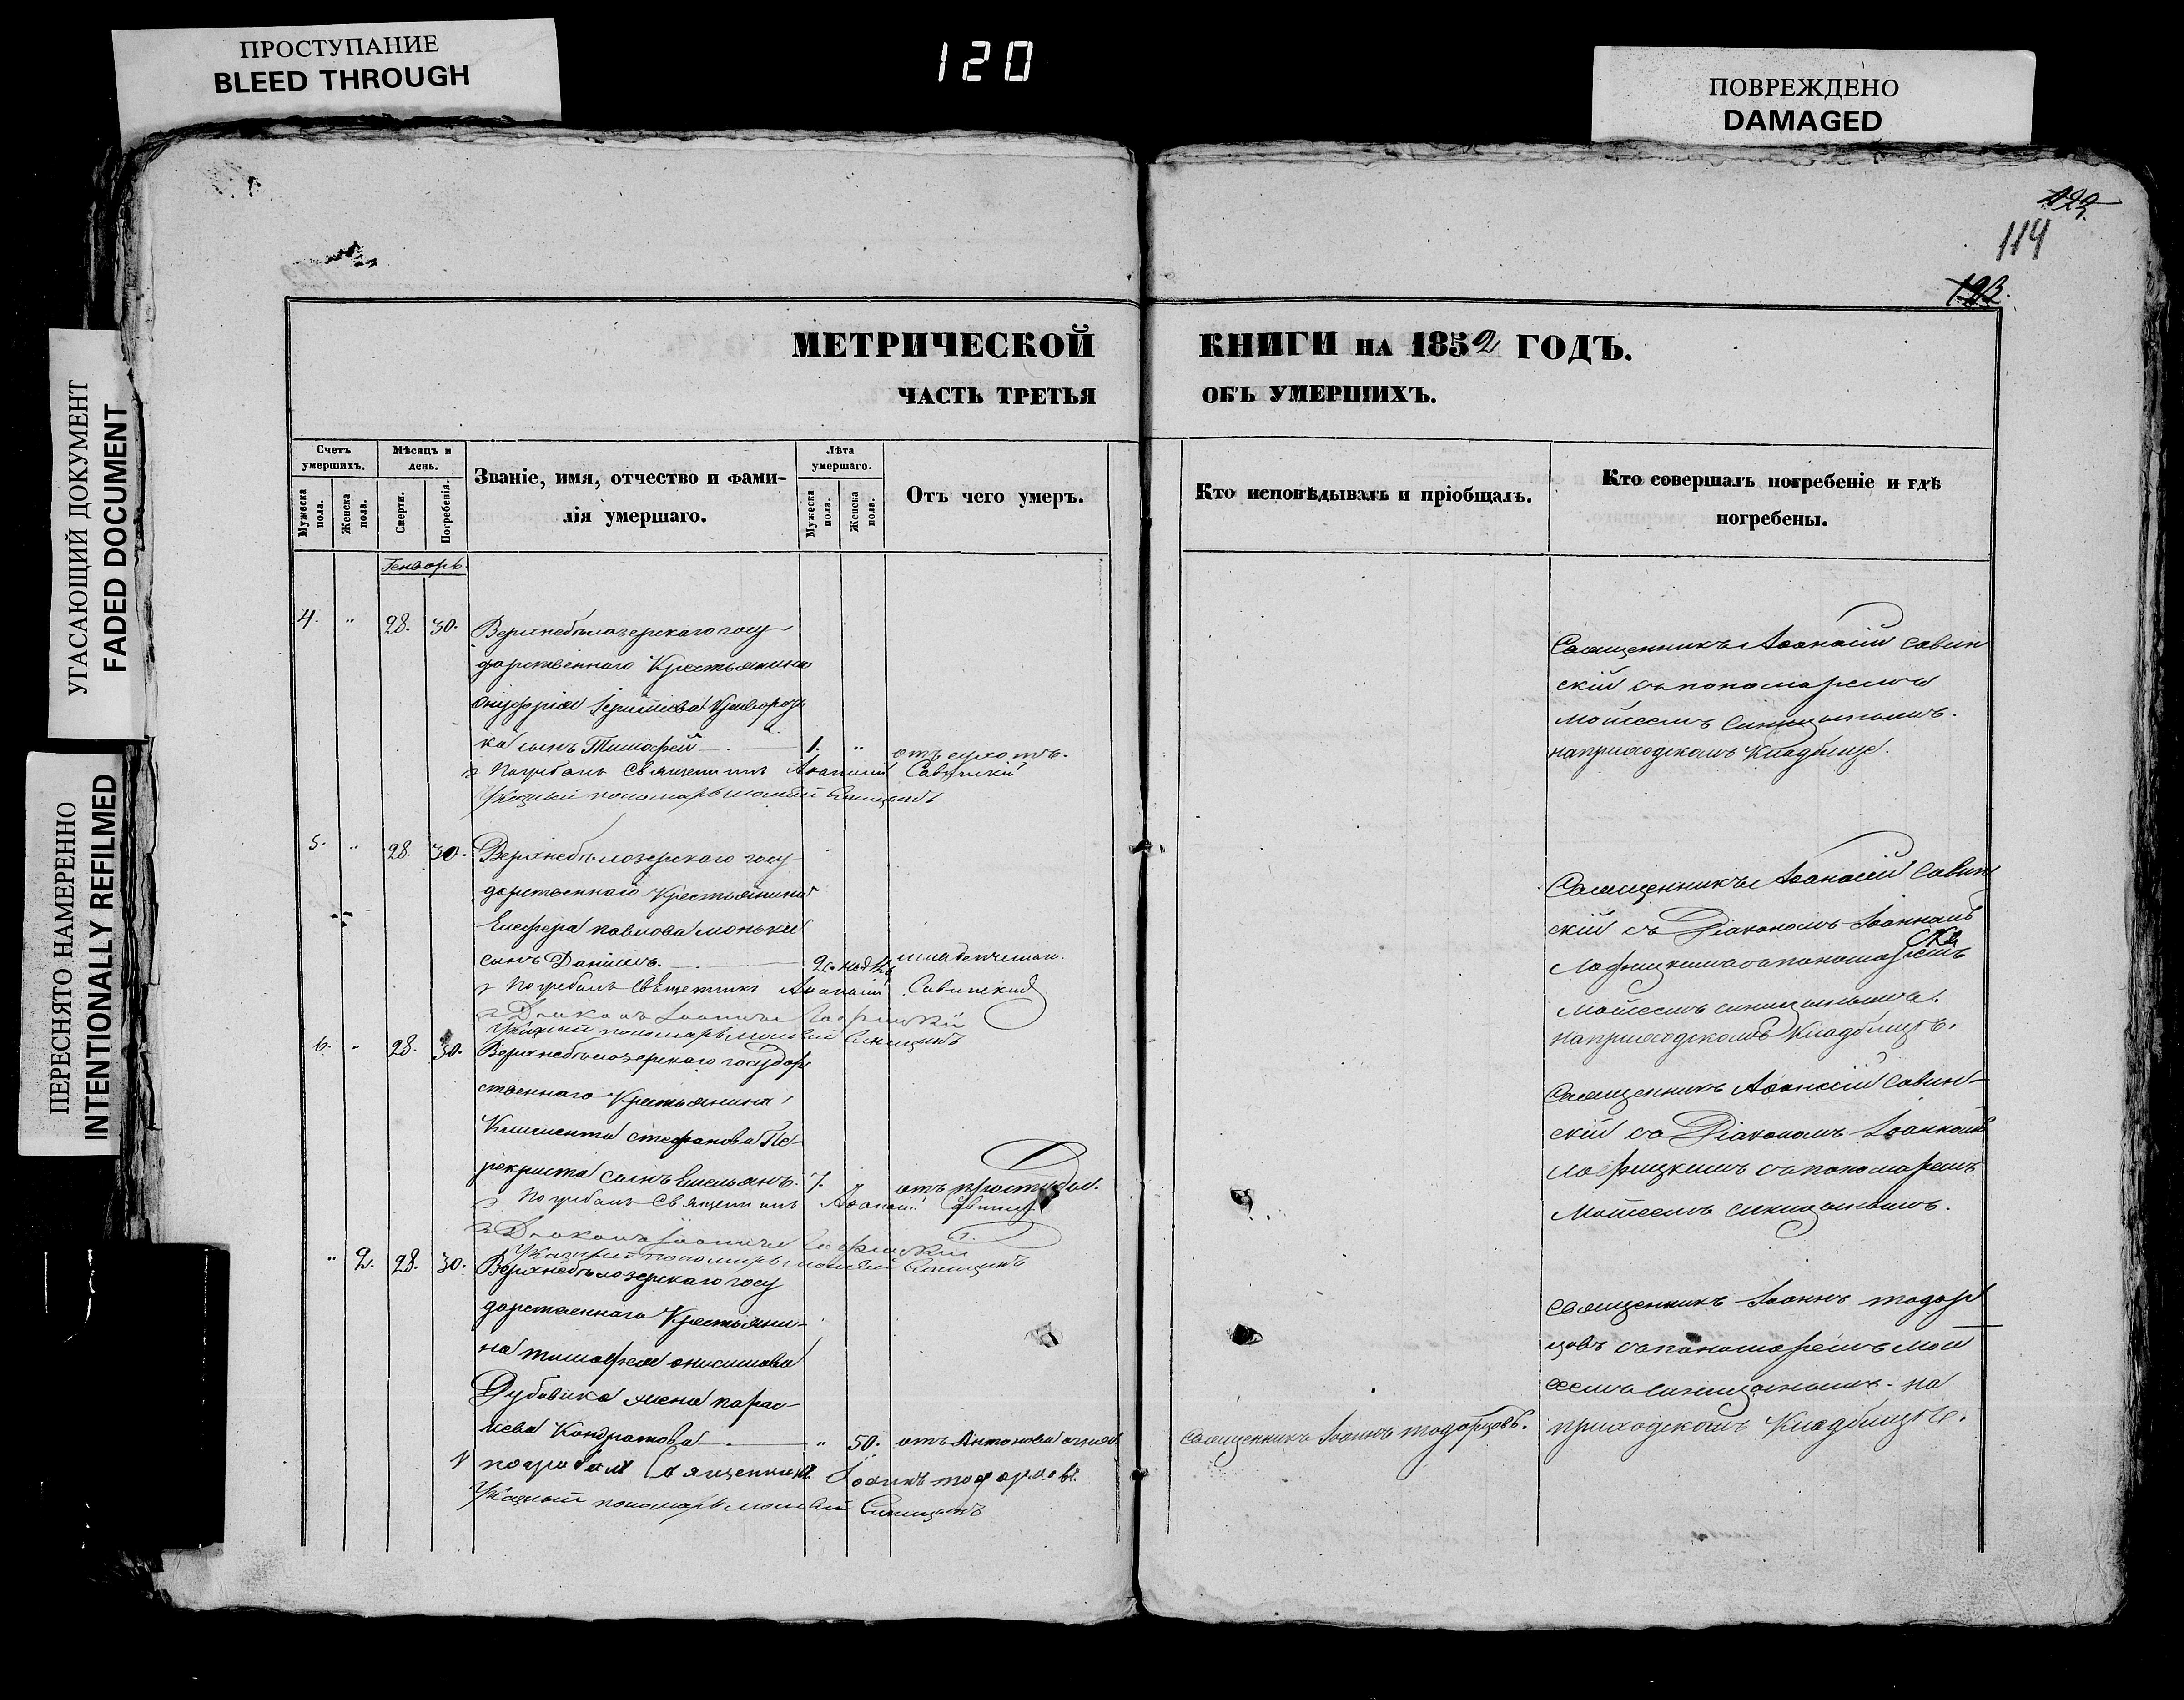 ПРОСТУПАНИЕ
BLEED THROUGH
120
ПОВРЕЖДЕНО
DAMAGED
УГАСАЮЩИЙ ДОКУМЕНТ
FADED DOCUMENT
ПЕРЕСНЯТО НАМЕРЕННО
INTENTIONALLY REFILMED
114
МЕТРИЧЕСКОЙ КНИГИ НА 1852 ГОДЪ.
ЧАСТЬ ТРЕТЬЯ ОБЪ УМЕРШИХЪ.
Счетъ умершихъ.
Мужеска пола.
Женска пола.
Мѣсяцъ и день.
Смерти.
Погребенія.
Званіе, имя, отчество и фами-
лія умершаго.
Лѣта умершаго.
Мужеска пола.
Женска пола.
Отъ чего умеръ.
Кто исповѣдывалъ и пріобщалъ.
Кто совершалъ погребеніе и гдѣ
погребены.
Генварь.
4. " 28. 30. Верхнебѣлозерскаго госу
дарственнаго Крестьянина
Онуфрія
ка сынъ Тимофей 1. " отъ сухотъ.
Погребалъ Священникъ Аѳанасій Савинскій
Указный пономарь Моисей Синицынъ
Священникъ Аѳанасій Савин
скій съ пономаремъ
Моисеемъ Синицынымъ.
на приходскомъ кладбище.
5. " 28. 30. Верхнебѣлозерскаго госу
дарственнаго Крестьянина
Елефера Павлова Моньки
сынъ Даніилъ. младенческ.
Погребалъ Священникъ Аѳанасій Савинскій
Діаконъ Іоаннъ
Указный пономарь Моисей Синицынъ
Священникъ Аѳанасій Савин
скій съ Діакономъ Іоанномъ
съ пономаремъ
Моисеемъ Синицынымъ.
на приходскомъ кладбищѣ.
6. " 28. 30. Верхнебѣлозерскаго государ
ственнаго Крестьянина
Климента Стефанова Пе-
рекриста сынъ Емельянъ. 7. отъ простуды.
Погребалъ Священникъ Аѳанасій
Діаконъ Іоаннъ
Указный пономарь Моисей Синицынъ
Священникъ Аѳанасій Савин-
скій съ Діакономъ Іоанномъ
съ пономаремъ
Моисеемъ Синицынымъ.
" 2. 28. 30. Верхнебѣлозерскаго госу
дарственнаго Крестьяни-
на Тимофея Онисимова
Дубовика жена Парас-
кева Кондратова " 50. отъ Антонова огня.
погребалъ Священникъ Іоаннъ Тодорцовъ.
Указный пономарь Моисей Синицынъ
Священникъ Іоаннъ Тодорцовъ.
Священникъ Іоаннъ Тодор
цовъ съ пономаремъ Мои
сеемъ Синицынымъ. на
приходскомъ Кладбищѣ.